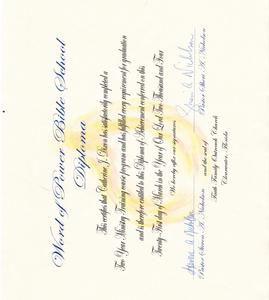 Word of Power Bible School
Diploma
This certifies that Catherine J. Dixon has satisfactorily completed a
Two Year Ministry Training course program and has fulfilled every requirement for graduation
and is therefore entitled to this Diploma of Achievement conferred on this
Twenty-First day of March in the Year of Our Lord Two Thousand and Four
We hereby affix our signatures
and the seal of
Pastor Steven A. Nicholson
Faith Family Outreach Church
Clearwater, Florida